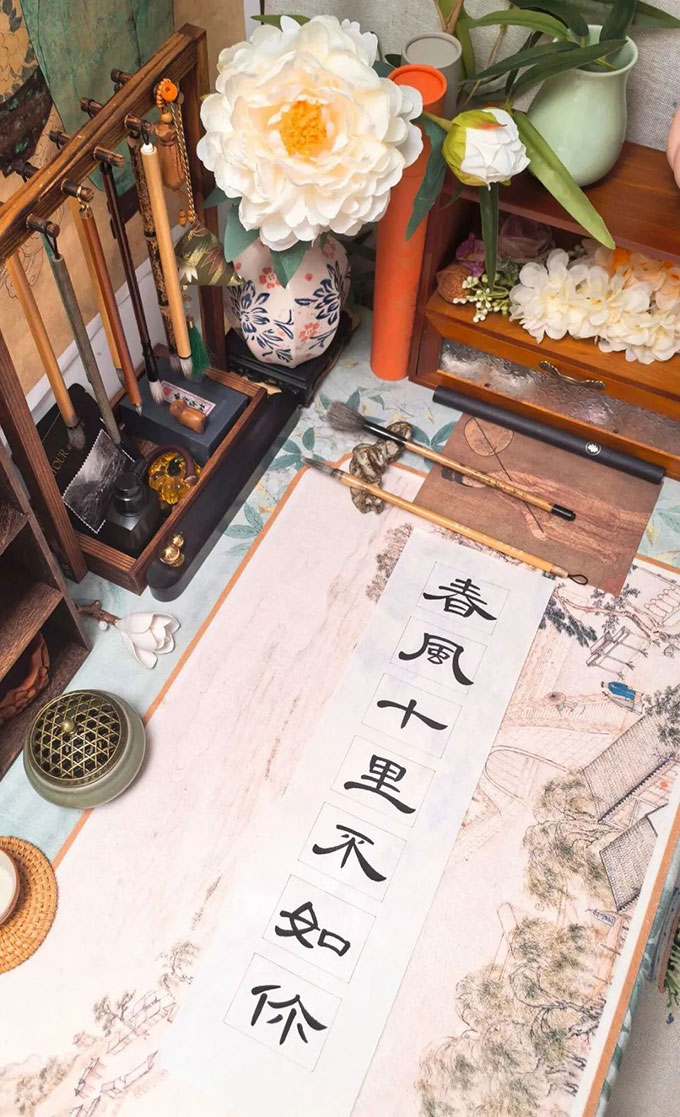 春風十里不如你
YOUR